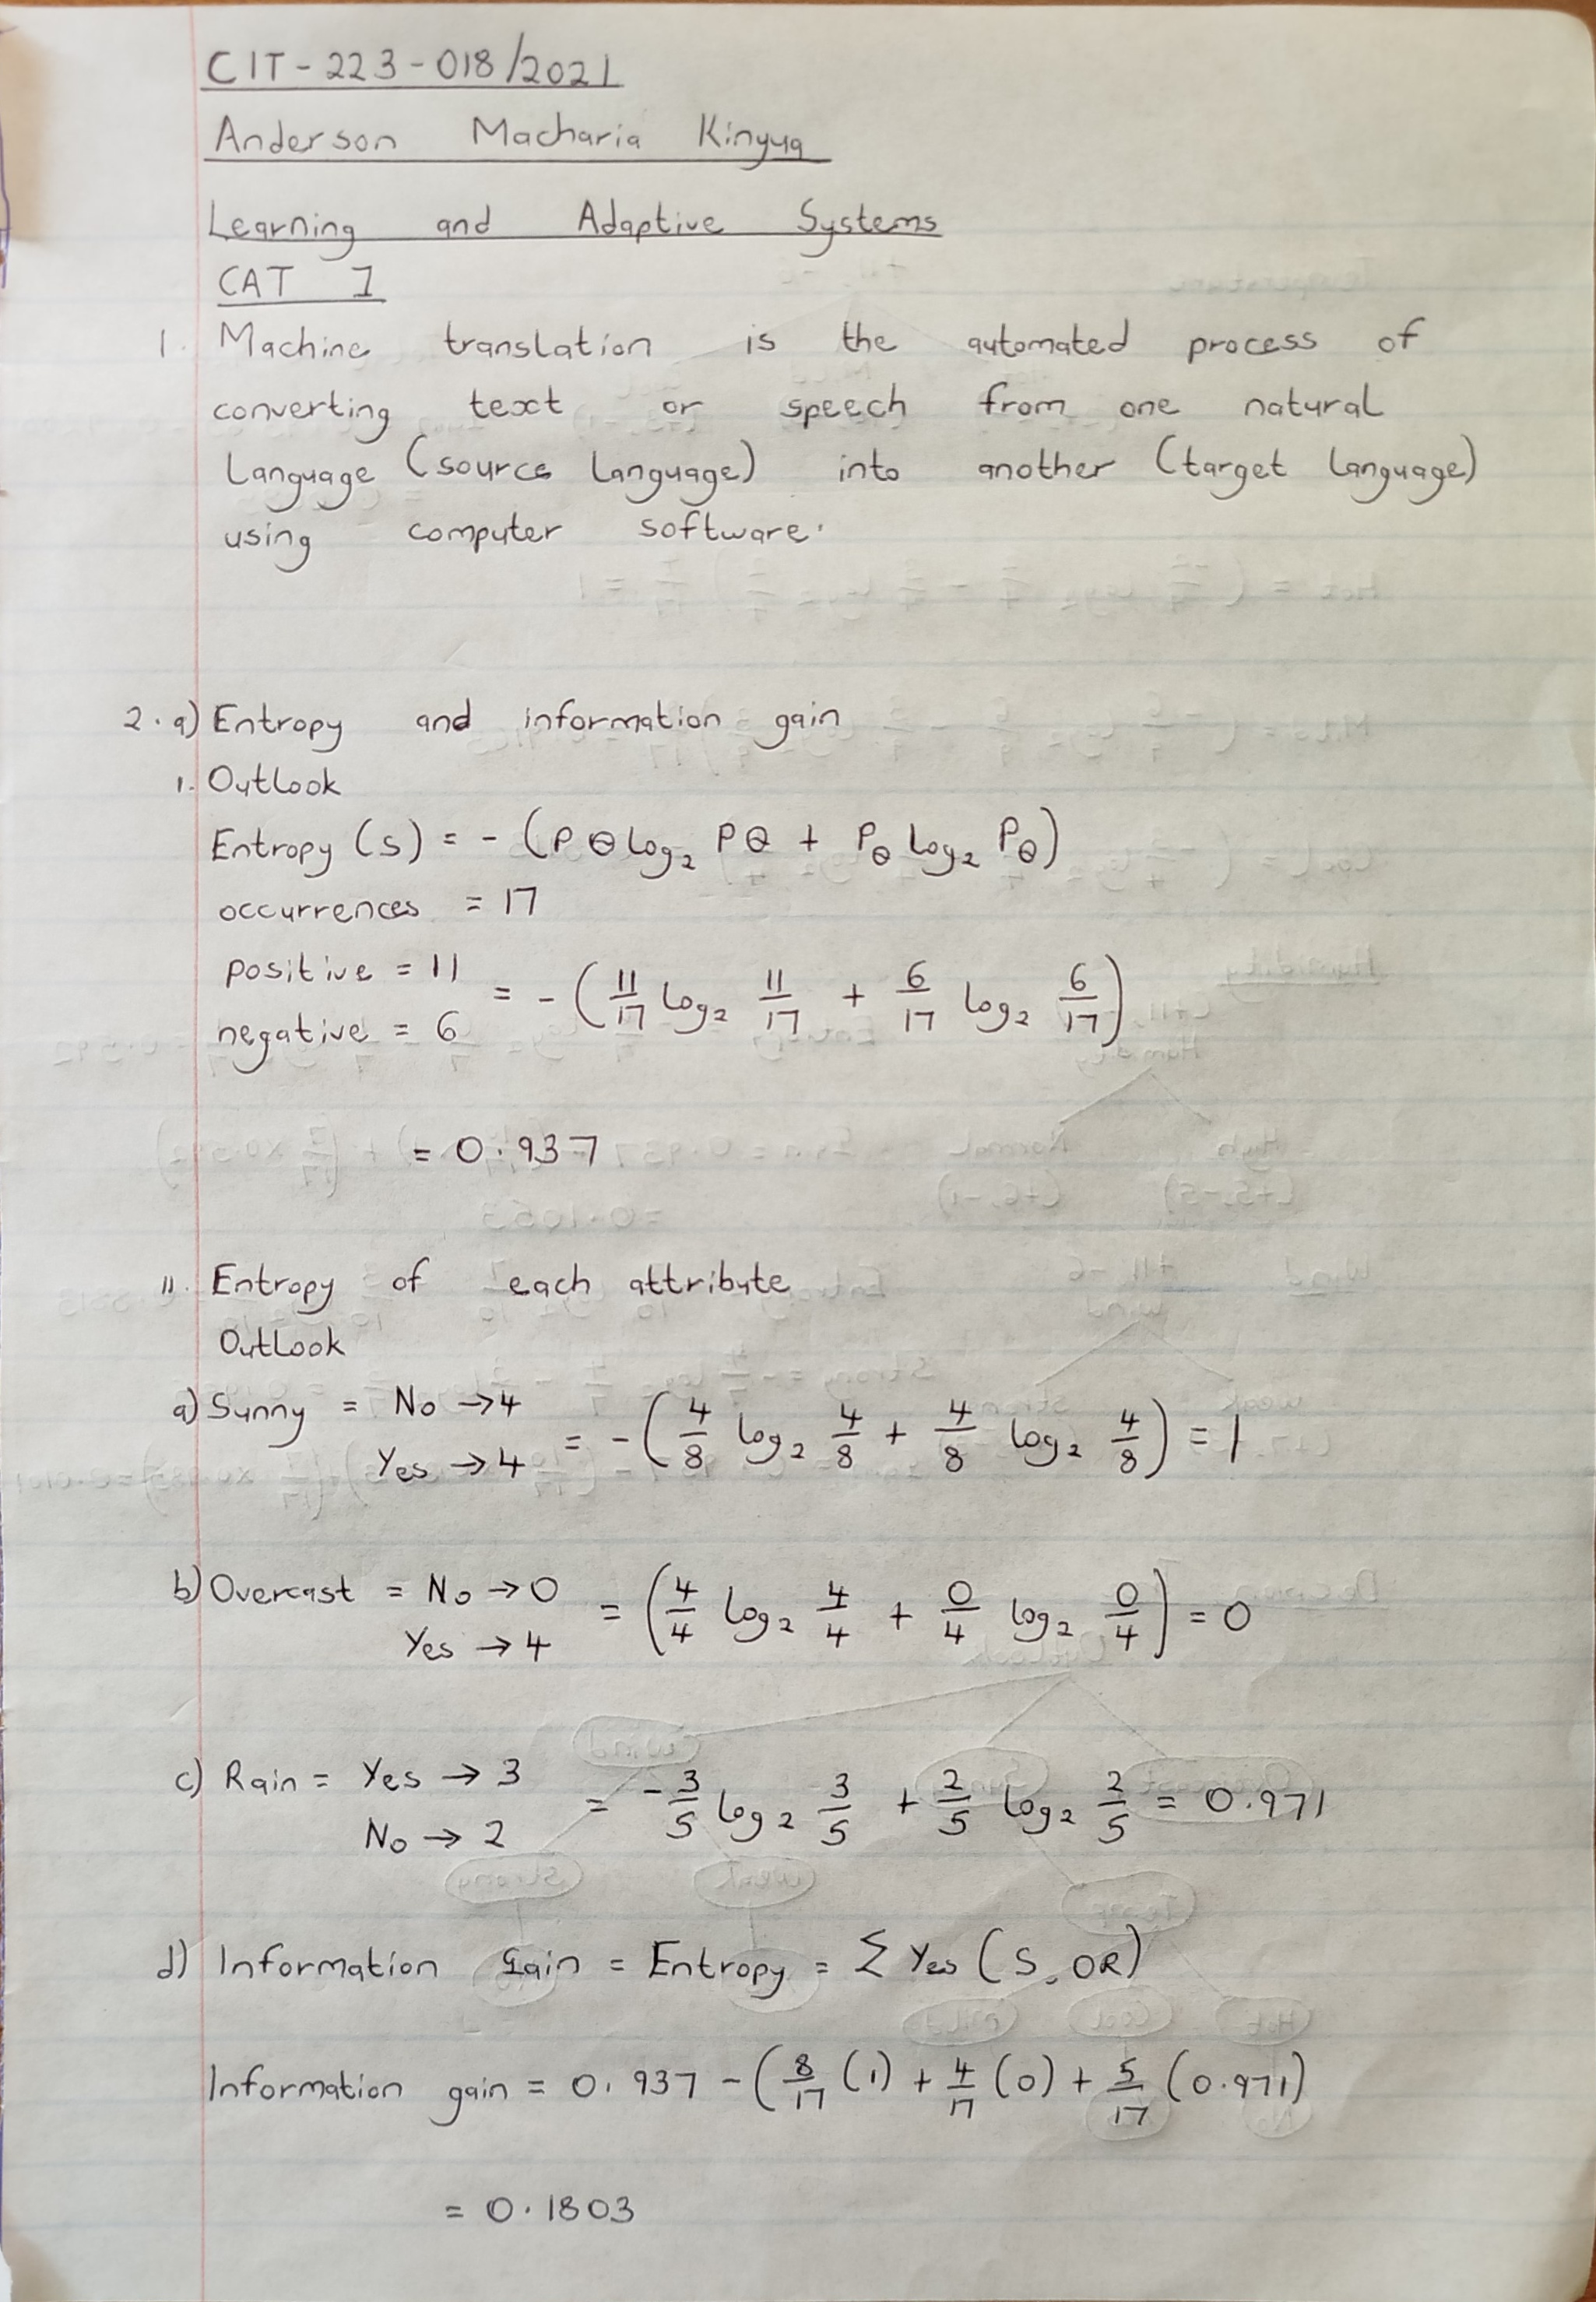 CIT-223-018/2021
Anderson Macharia Kinyua
Learning and Adaptive Systems
CAT 1
1. Machine translation is the automated process of
converting text or speech from one natural
language (source language) into another (target language)
using computer software.
2. a) Entropy and information gain
1. Outlook
Entropy (s) = - (P⊖ log₂ P⊖ + P⊖ log₂ P⊖)
occurrences = 17
positive = 11
negative = 6
= - (11/17 log₂ 11/17 + 6/17 log₂ 6/17)
= 0.937
11. Entropy of each attribute
Outlook
a) Sunny = No → 4
Yes → 4
= - (4/8 log₂ 4/8 + 4/8 log₂ 4/8) = 1
b) Overcast = No → 0
Yes → 4
= (4/4 log₂ 4/4 + 0/4 log₂ 0/4) = 0
c) Rain = Yes → 3
No → 2
= -3/5 log₂ 3/5 + 2/5 log₂ 2/5 = 0.971
d) Information gain = Entropy = Σ Yes (S, OR)
Information gain = 0.937 - (8/17 (1) + 4/17 (0) + 5/17 (0.971)
= 0.1803